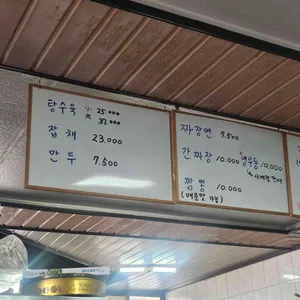 탕수육 小 25.000
大 37.000
잡채 23.000
만두 7.500
짜장면 7.500
간짜장 10.000
냉우동 10.000
짬뽕 10.000
(매운맛 가능)